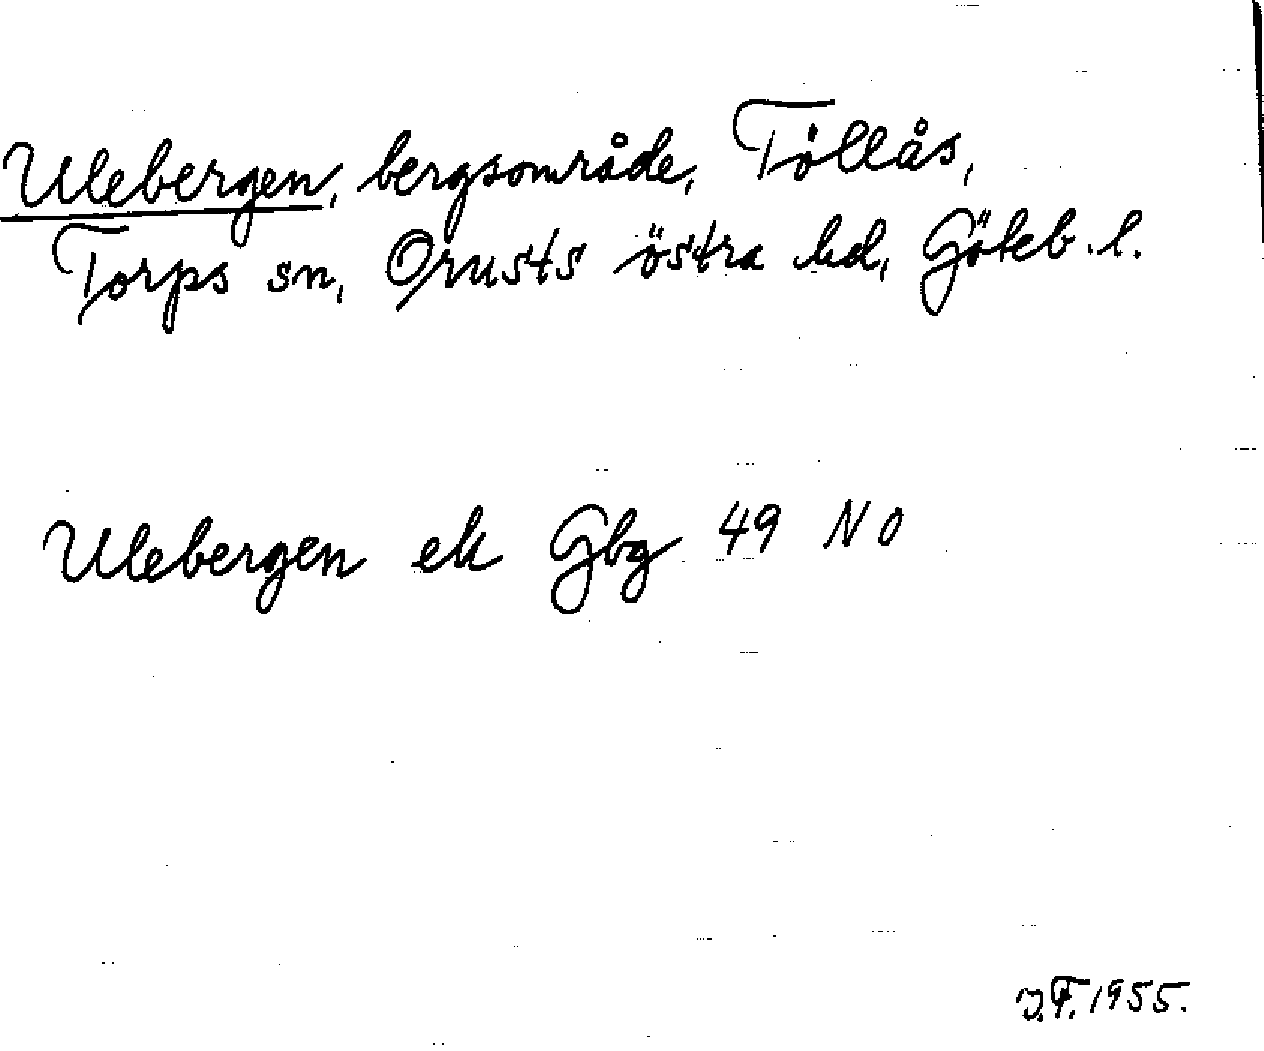 Ulebergen, bergsområde, Töllås,
Torps sn, Orusts östra hd, Göteb. l.
Ulebergen ek Gbg 49 NO
J.F. 1955.